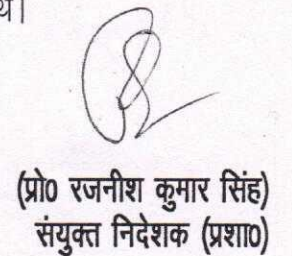 थे।
(प्रो0 रजनीश कुमार सिंह)
संयुक्त निदेशक (प्रशा0)